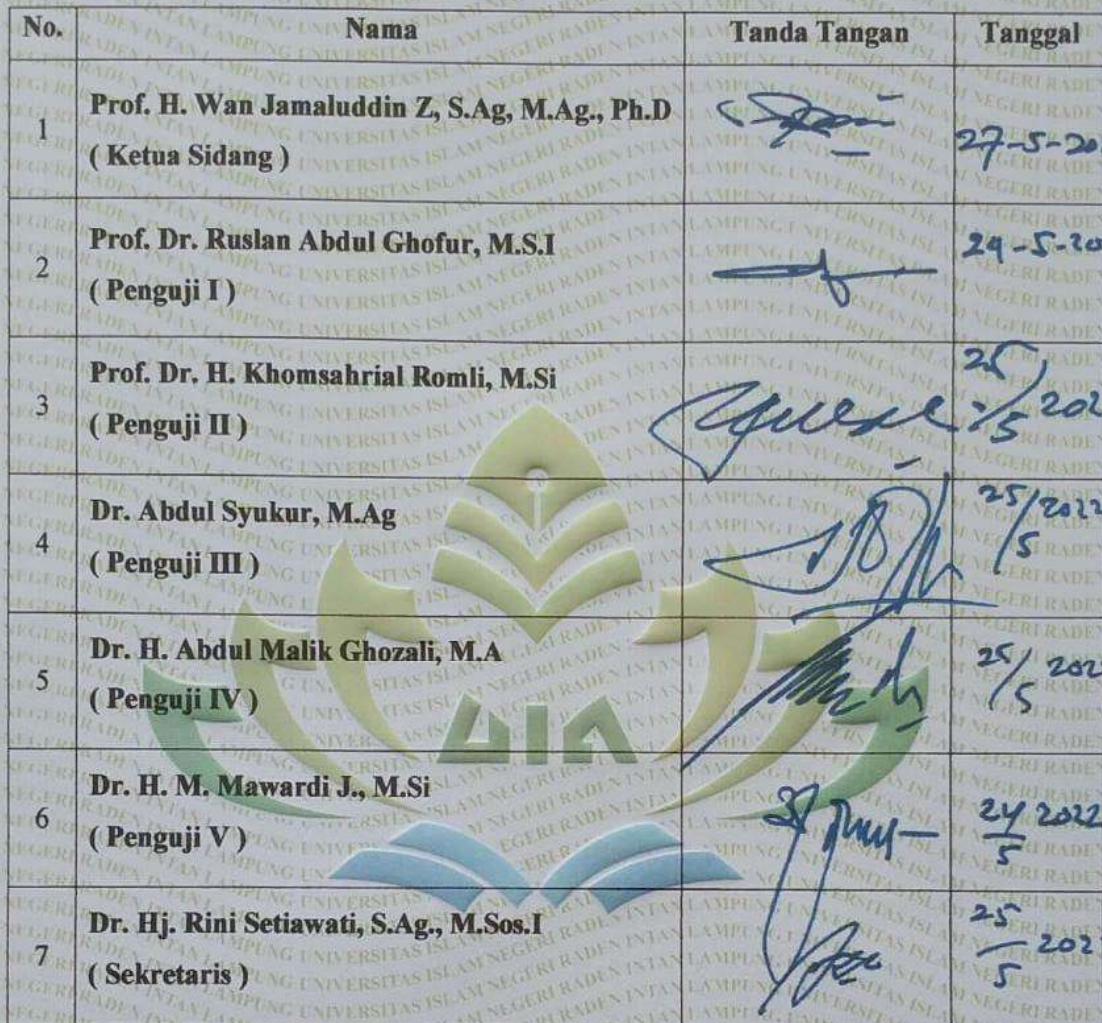 No. Nama Tanda Tangan Tanggal
1 Prof. H. Wan Jamaluddin Z, S.Ag, M.Ag., Ph.D
( Ketua Sidang ) 27-5-20
2 Prof. Dr. Ruslan Abdul Ghofur, M.S.I
( Penguji I ) 24-5-20
3 Prof. Dr. H. Khomsahrial Romli, M.Si
( Penguji II ) 25/5 202
4 Dr. Abdul Syukur, M.Ag
( Penguji III ) 25/5 2022
5 Dr. H. Abdul Malik Ghozali, M.A
( Penguji IV ) 25/5 202
6 Dr. H. M. Mawardi J., M.Si
( Penguji V ) 24/5 2022
7 Dr. Hj. Rini Setiawati, S.Ag., M.Sos.I
( Sekretaris ) 25/5 202
UIN